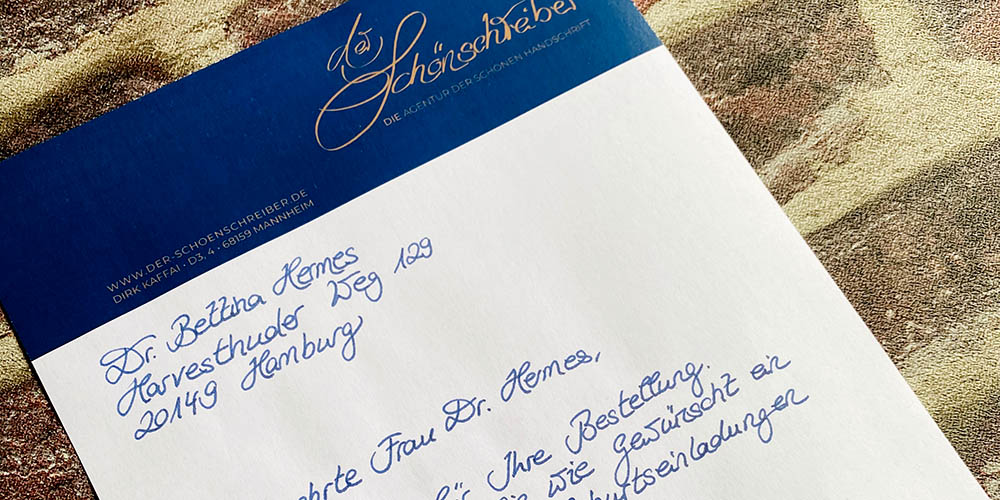 der
Schönschreiber
DIE AGENTUR DER SCHÖNEN HANDSCHRIFT
WWW.DER-SCHOENSCHREIBER.DE
DIRK KAFFAI · D3, 4 · 68159 MANNHEIM
Dr. Bettina Hermes
Harvesthuder Weg 129
20149 Hamburg
Frau Dr. Hermes,
Ihre Bestellung.
wie gewünscht ein